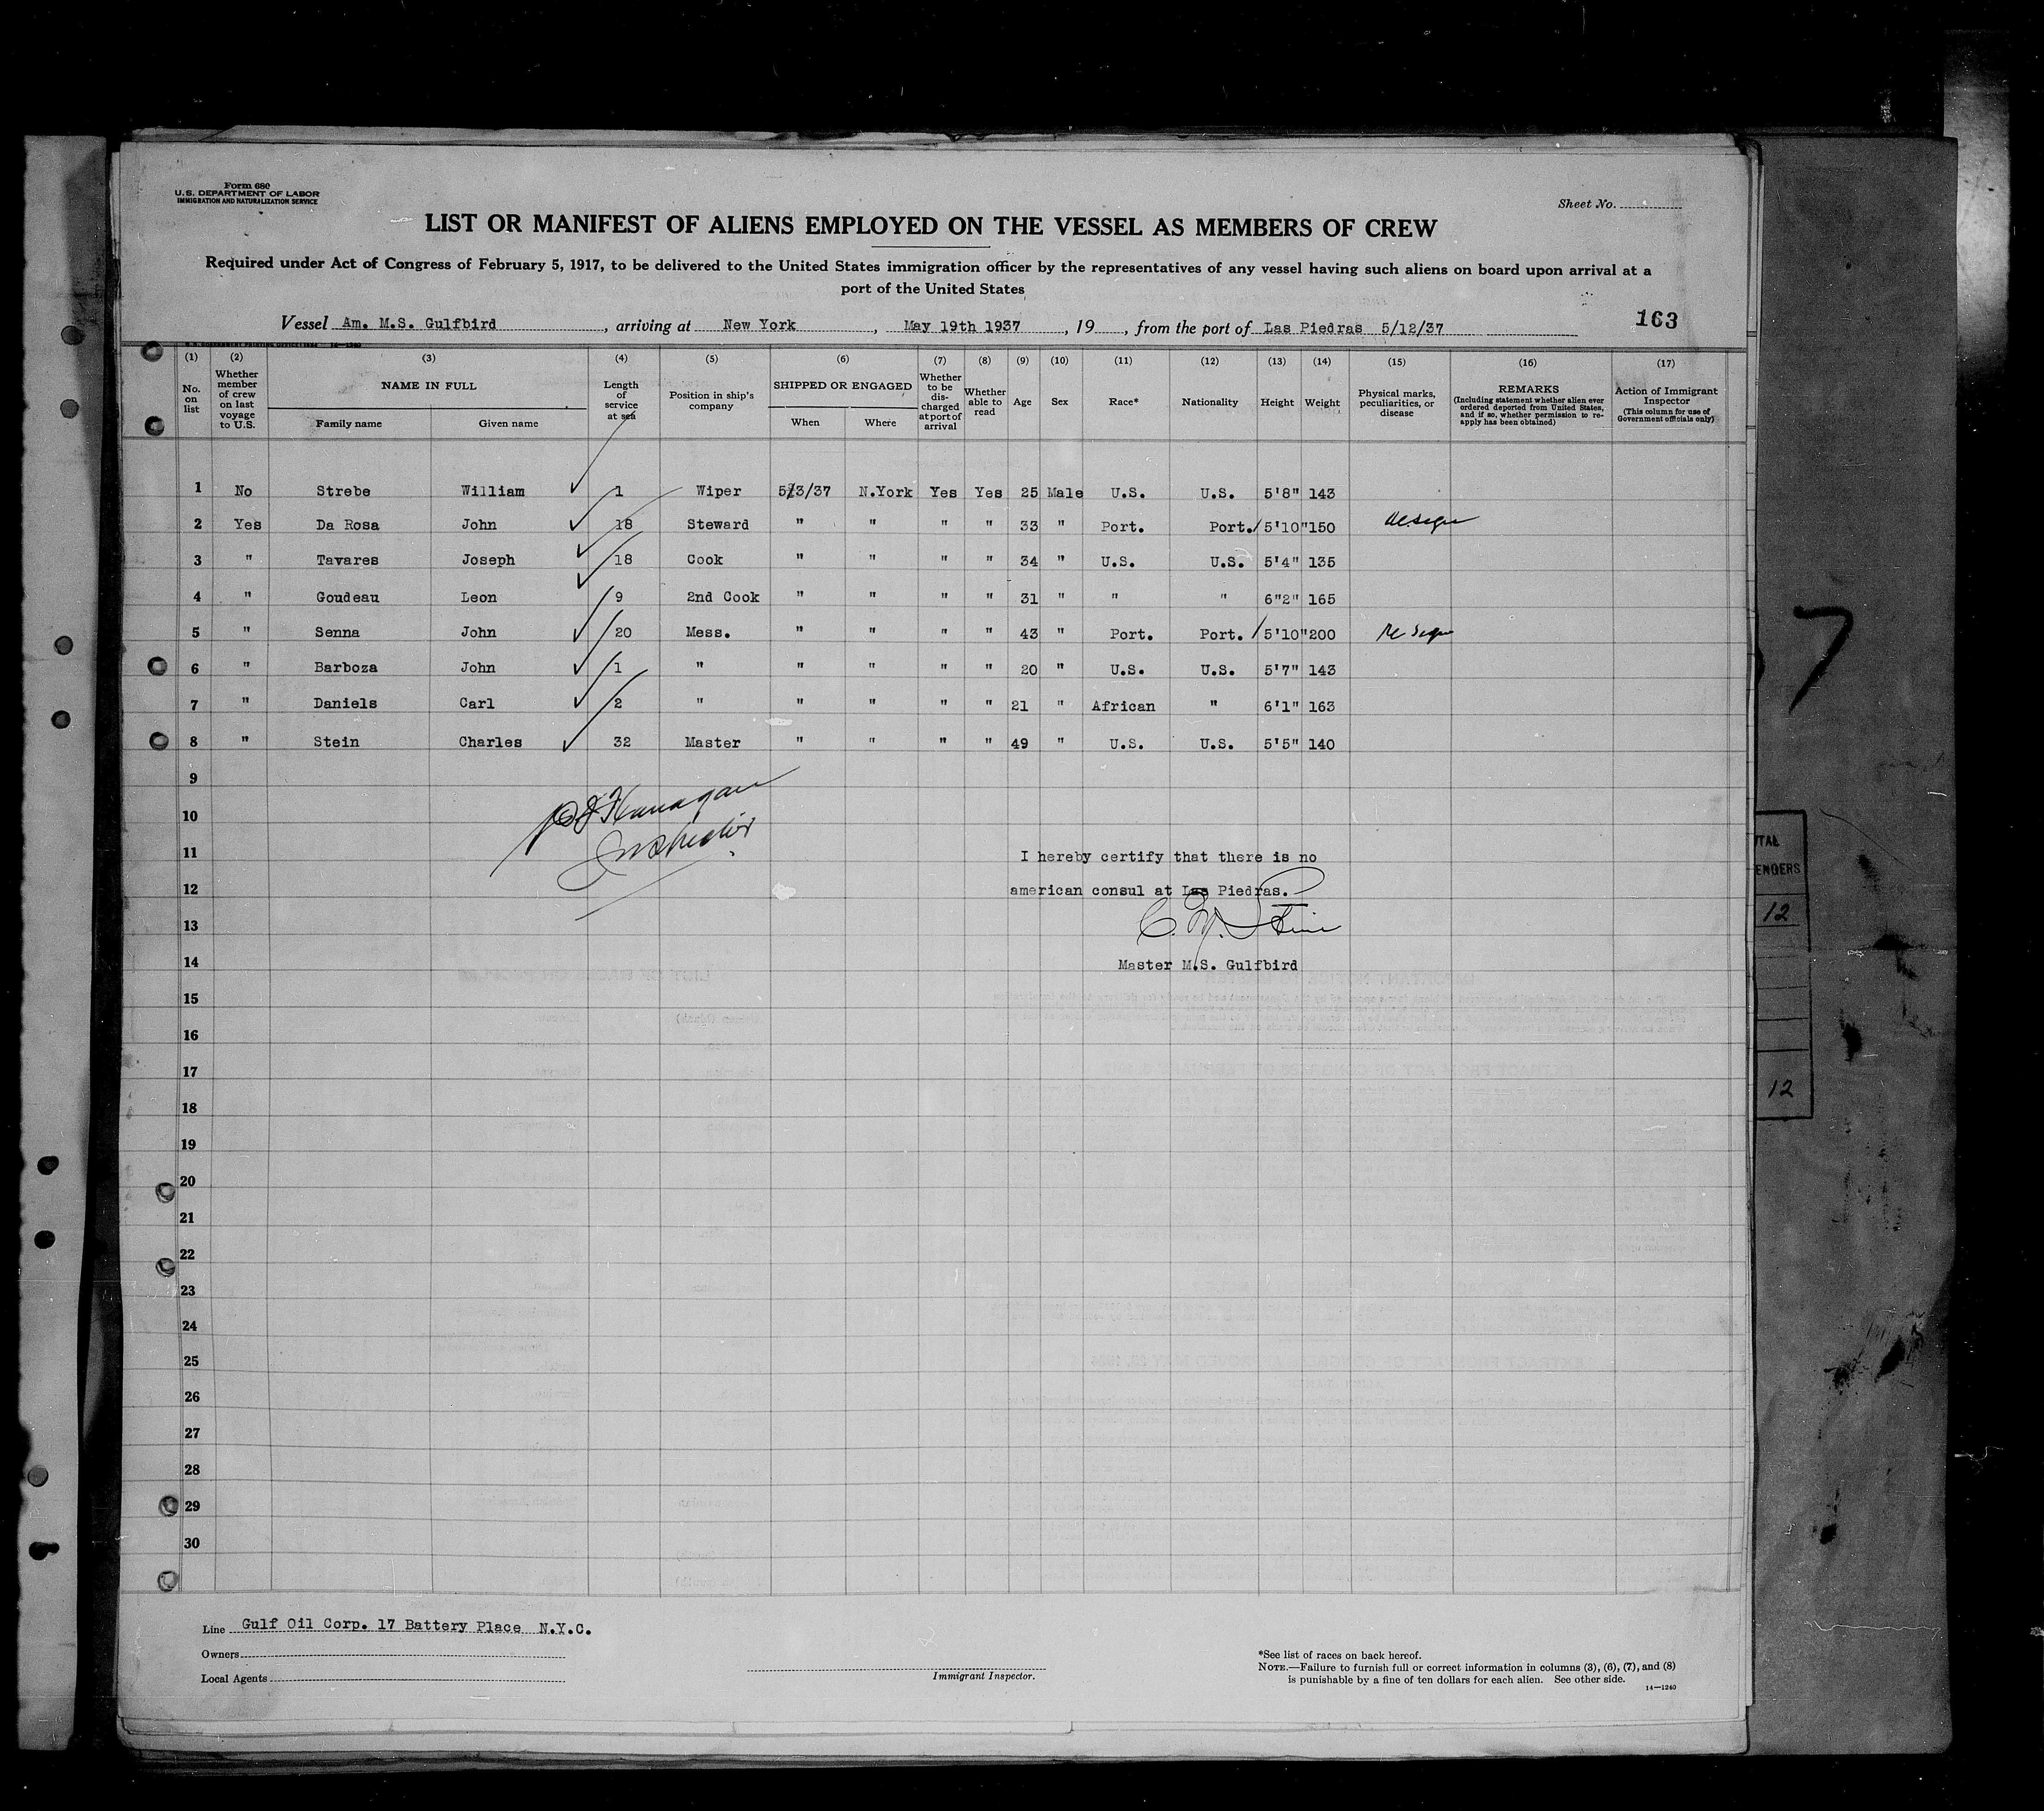 Form 680
U.S. DEPARTMENT OF LABOR
IMMIGRATION AND NATURALIZATION SERVICE
Sheet No.
LIST OR MANIFEST OF ALIENS EMPLOYED ON THE VESSEL AS MEMBERS OF CREW
Required under Act of Congress of February 5, 1917, to be delivered to the United States immigration officer by the representatives of any vessel having such aliens on board upon arrival at a
port of the United States
Vessel Am. M.S. Gulfbird, arriving at New York, May 19th 1937, 19, from the port of Las Piedras 5/12/37
163
(1) No. on list
(2) Whether member of crew on last voyage to U.S.
(3) NAME IN FULL Family name Given name
(4) Length of service at sea
(5) Position in ship's company
(6) SHIPPED OR ENGAGED When Where
(7) Whether to be discharged at port of arrival
(8) Whether able to read
(9) Age
(10) Sex
(11) Race*
(12) Nationality
(13) Height
(14) Weight
(15) Physical marks, peculiarities, or disease
(16) REMARKS (Including statement whether alien ever ordered deported from United States, and if so, whether permission to reapply has been obtained)
(17) Action of Immigrant Inspector (This column for use of Government officials only)
1 No Strebe William 1 Wiper 5/3/37 N.York Yes Yes 25 Male U.S. U.S. 5'8" 143
2 Yes Da Rosa John 18 Steward " " " " 33 " Port. Port. 5'10" 150
3 " Tavares Joseph 18 Cook " " " " 34 " U.S. U.S. 5'4" 135
4 " Goudeau Leon 9 2nd Cook " " " " 31 " " " 6"2" 165
5 " Senna John 20 Mess. " " " " 43 " Port. Port. 5'10" 200
6 " Barboza John 1 " " " " " 20 " U.S. U.S. 5'7" 143
7 " Daniels Carl 2 " " " " " 21 " African " 6'1" 163
8 " Stein Charles 32 Master " " " " 49 " U.S. U.S. 5'5" 140
9
10
Inspector
11
I hereby certify that there is no
12
american consul at Las Piedras.
13
14
Master M.S. Gulfbird
15
16
17
18
19
20
21
22
23
24
25
26
27
28
29
30
Line Gulf Oil Corp. 17 Battery Place N.Y.C.
Owners
Local Agents
Immigrant Inspector.
*See list of races on back hereof.
NOTE.—Failure to furnish full or correct information in columns (3), (6), (7), and (8)
is punishable by a fine of ten dollars for each alien. See other side.
14—1240
7
12
12